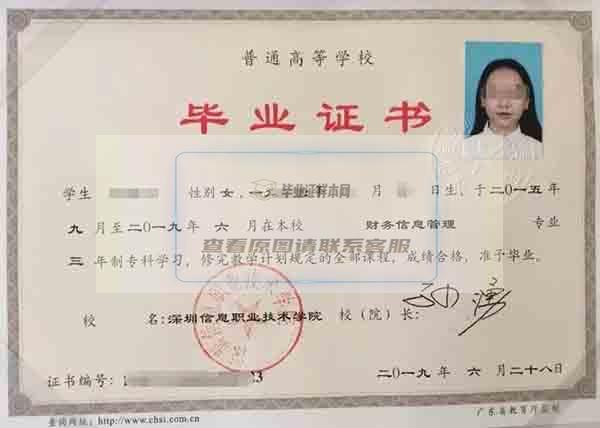 普通高等学校
毕业证书
学生 性别 女, 一九 毕业证样本网 月 日生, 于二〇一五年
九 月至二〇一九年 六 月在本校 财务信息管理 专业
查看原图请联系客服
三 年制专科学习, 修完教学计划规定的全部课程, 成绩合格, 准予毕业。
校 名: 深圳信息职业技术学院 校(院)长:
证书编号: 23 二〇一九 年 六 月二十八日
查询网址: http://www.chsi.com.cn 广东省教育厅监制